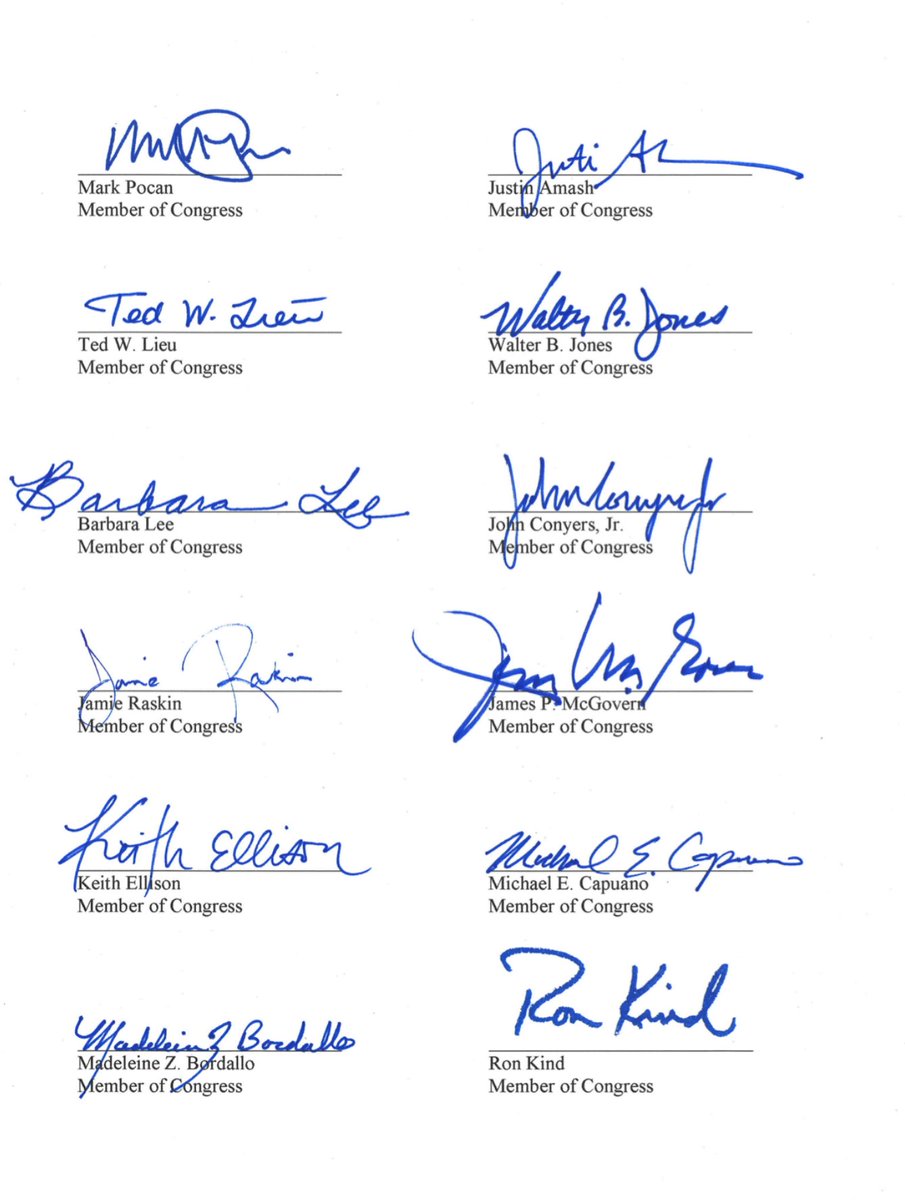 Mark Pocan
Member of Congress
Justi A
Justin Amash
Member of Congress
Ted W. Lieu
Ted W. Lieu
Member of Congress
Walter B. Jones
Walter B. Jones
Member of Congress
Barbara Lee
Barbara Lee
Member of Congress
John Conyers Jr
John Conyers, Jr.
Member of Congress
Jamie Raskin
Jamie Raskin
Member of Congress
Jim McGovern
James P. McGovern
Member of Congress
Keith Ellison
Keith Ellison
Member of Congress
Michael E. Capuano
Michael E. Capuano
Member of Congress
Madeleine Z Bordallo
Madeleine Z. Bordallo
Member of Congress
Ron Kind
Ron Kind
Member of Congress